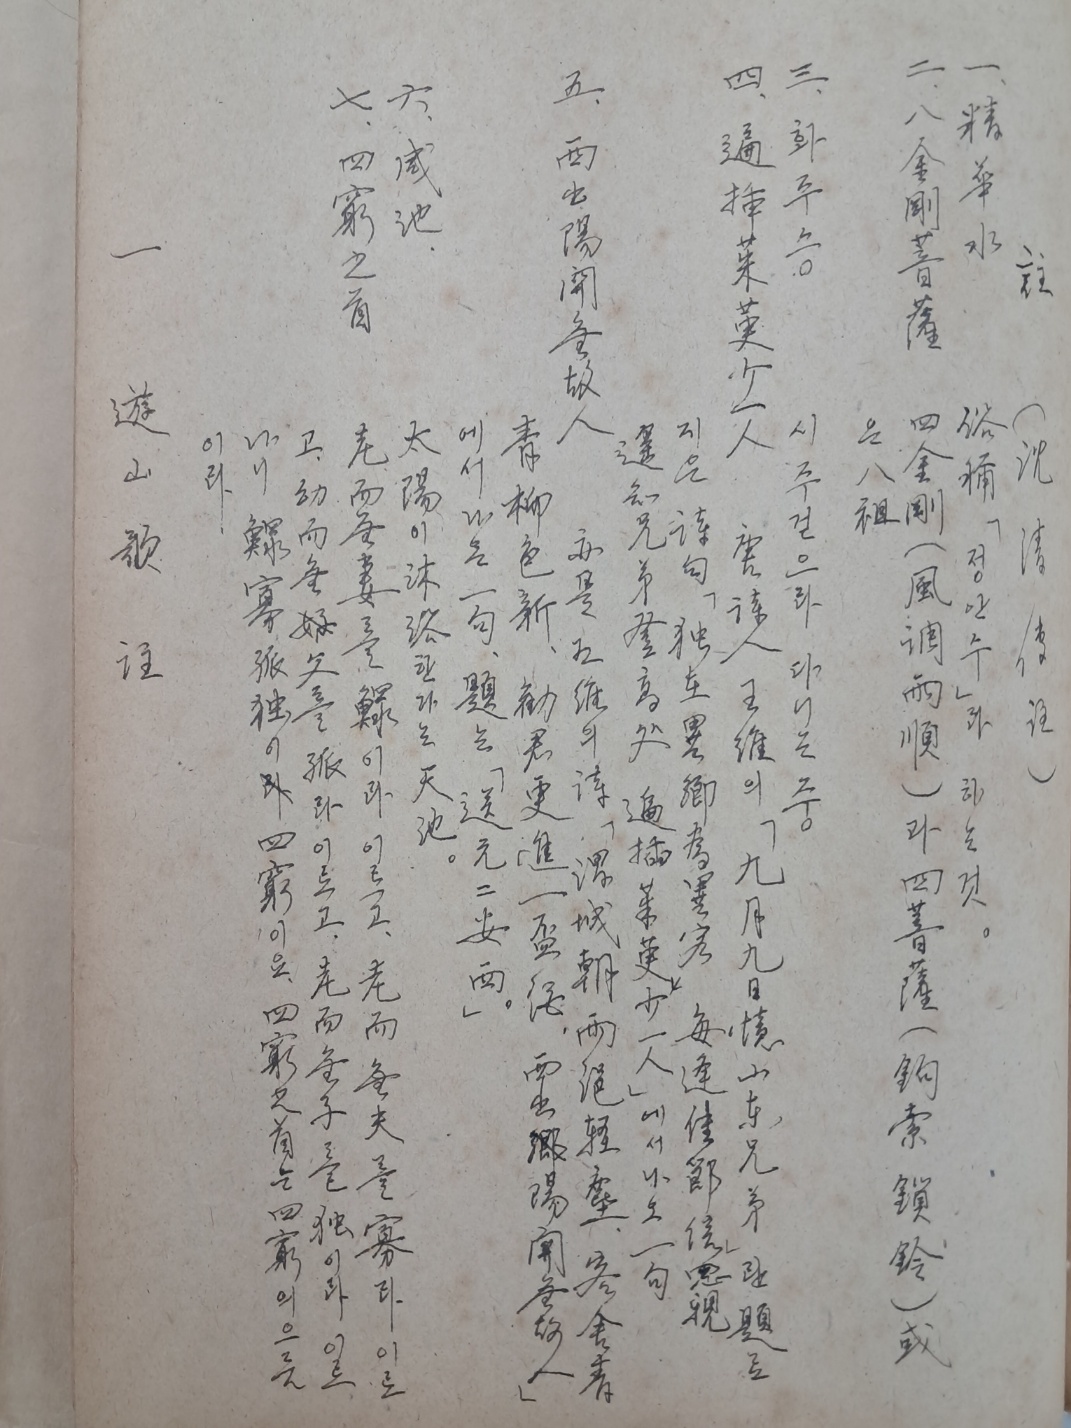 註 (沈淸傳註)
一、精華水 俗稱「정안수」라 하는것。
二、八金剛菩薩 四金剛(風調雨順)과 四菩薩(鉤索鎖鈴)或
은 八祖
三、화주승 시주걷으라 다니는 중
四、遍揷茱萸少一人 唐詩人 王維의 「九月九日憶山东兄弟란 題로
지은 詩句「独在異鄉為異客 每逢佳節倍」思親
遙知兄弟登高处 遍揷茱萸少一人」에서 나오 一句
五、西出陽関無故人 亦是 王維의 詩「渭城朝雨浥輕塵、客舍青
青柳色新、勸君更進一盃後、西出鄉陽関無故人」
에서 나온 一句、題는「送元二安西。」
六、咸池、 太陽이 沐浴한다는 天池。
七、四窮之首 老而無妻를 鰥이라 이르고、老而無夫를 寡라 이르
고、幼而無父를 孤라 이르고、老而無子를 独이라 이르
나니 鰥寡孤独이라 四窮이요、四窮之首는 四窮의 으뜸
이라
一 遊山歌 註